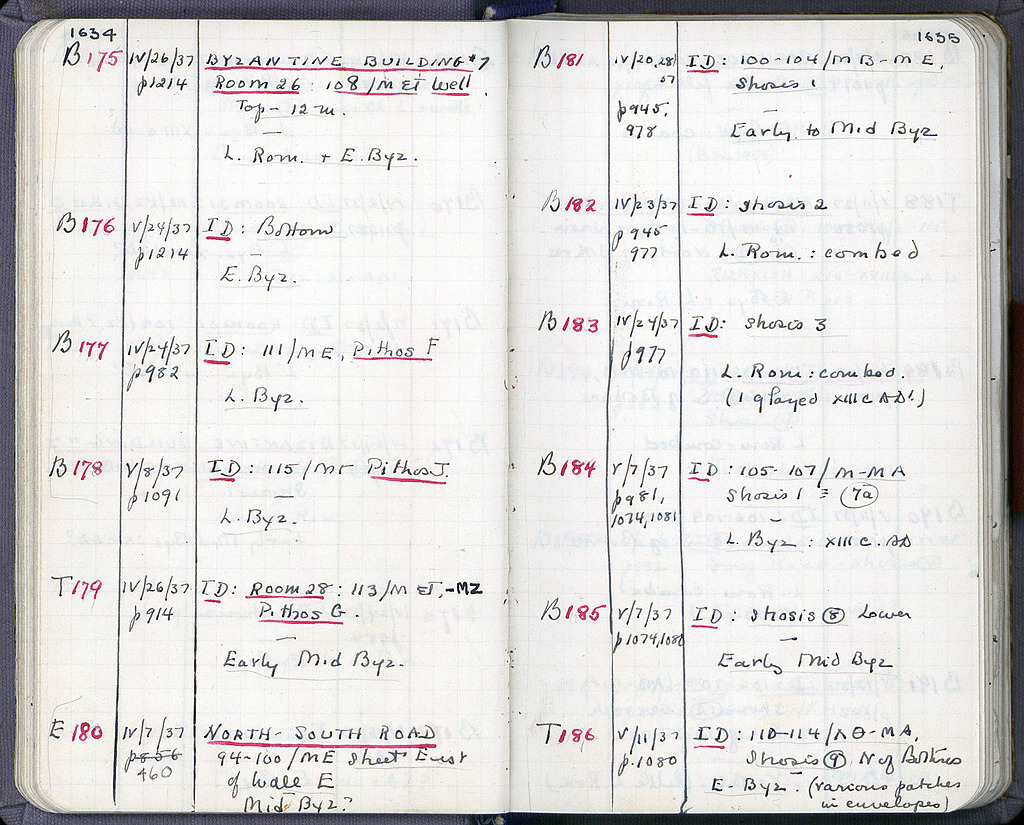 1634
B175 IV/26/37 BYZANTINE BUILDING #7
p1214 Room 26: 108/MΣΤ Well
Top - 12 m.
—
L. Rom. + E. Byz.
B176 V/24/37 ID: Bottom
p1214 —
E. Byz.
B177 IV/24/37 ID: 111/ME, Pithos F
p982
L. Byz.
B178 V/8/37 ID: 115/ Pithos I
p1091 —
L. Byz.
T179 IV/26/37 ID: Room 28: 113/ -MZ
p914 Pithos G.
—
Early Mid Byz.
E 180 IV/7/37 NORTH-SOUTH ROAD
p856 94-100/ME Sheet East
460 of Wall E
Mid Byz?
1635
B181 IV/20,28/37 ID: 100-104/MB-ME,
Shosis
p945, —
978 Early to Mid Byz
B182 IV/23/37 ID: Shosis 2
p945 —
977 L. Rom.: combed
B183 IV/24/37 ID: Shosis 3
p977
L. Rom: combed.
(1 glazed XIII c AD!)
B184 V/7/37 ID: 105-107/M-MA
p981, Shosis 1 ≡ 7a
1074,1081 —
L. Byz: XIII c. AD
B185 V/7/37 ID: Shosis 8 Lower
p1074,1080 —
Early Mid Byz
T186 V/11/37 ID: 110-114/ΛΘ-MA,
p.1080 Shosis 9 N of Bothros
E. Byz. (various patches
in envelopes)